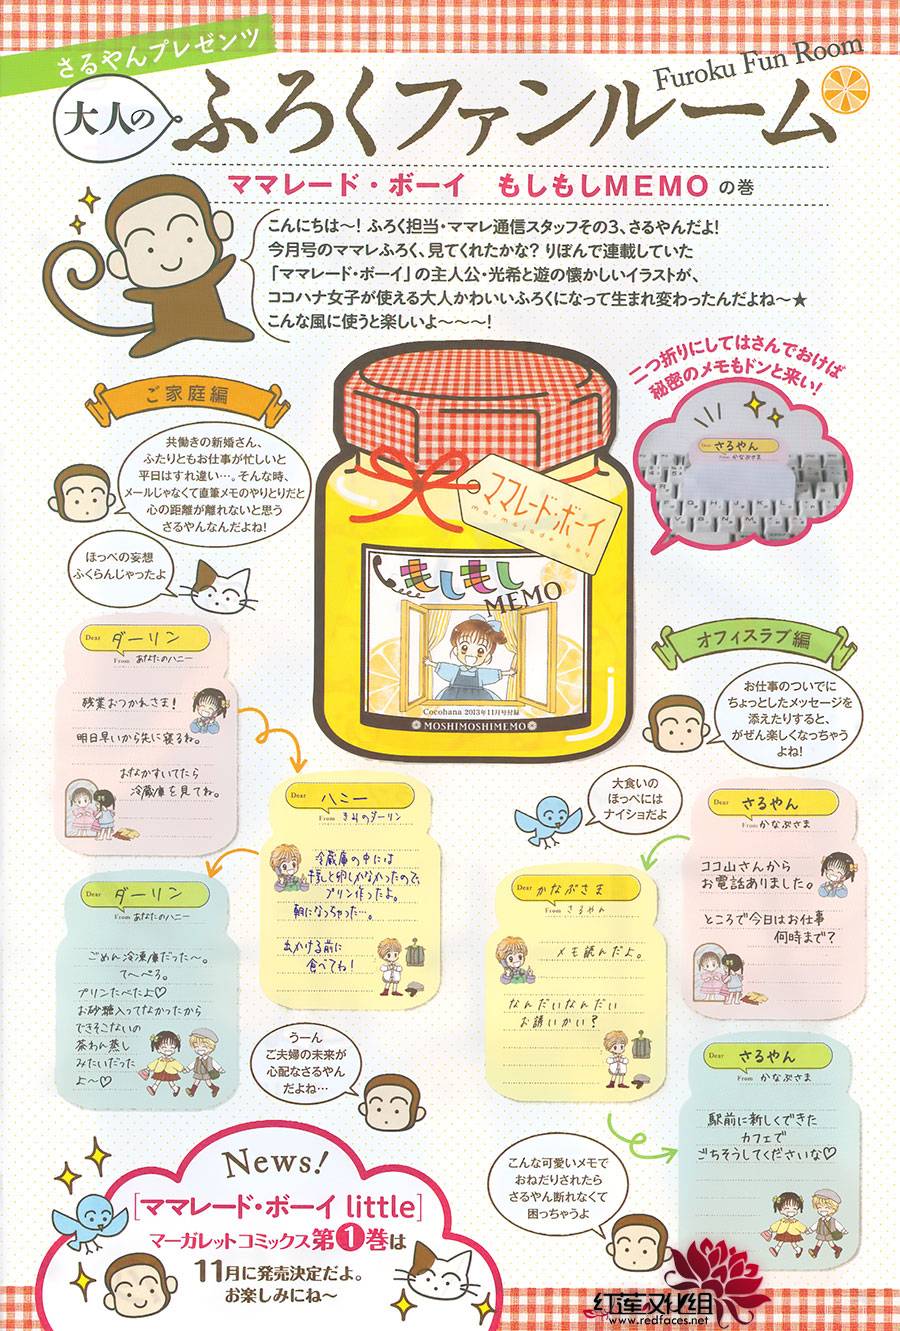 さるやんプレゼンツ
大人の
ふろくファンルーム
Furoku Fun Room
ママレード・ボーイ もしもしMEMO の巻
こんにちは〜！ ふろく担当・ママレ通信スタッフその3、さるやんだよ！
今月号のママレふろく、見てくれたかな？ りぼんで連載していた
「ママレード・ボーイ」の主人公・光希と遊の懐かしいイラストが、
ココハナ女子が使える大人かわいいふろくになって生まれ変わったんだよね〜★
こんな風に使うと楽しいよ〜〜〜！
二つ折りにしてはさんでおけば
秘密のメモもドンと来い！
Dear さるやん
From かなぶさま
ご家庭編
共働きの新婚さん、
ふたりともお仕事が忙しいと
平日はすれ違い…。そんな時、
メールじゃなくて直筆メモのやりとりだと
心の距離が離れないと思う
さるやんなんだよね！
ほっぺの妄想
ふくらんじゃったよ
ママレード・ボーイ
marmalade boy
もしもし
MEMO
Cocohana 2013年11月号付録
MOSHIMOSHIMEMO
Dear ダーリン
From あなたのハニー
残業おつかれさま！
明日早いから先に寝るね。
おなかすいてたら
冷蔵庫を見てね。
Dear ハニー
From きみのダーリン
冷蔵庫の中には
牛乳と卵しかなかったので、
プリン作ったよ。
朝になっちゃった…。
出かける前に
食べてね！
Dear ダーリン
From あなたのハニー
ごめん冷凍庫だった〜。
て〜へろ。
プリンたべたよ♡
お砂糖入ってなかったから
できそこないの
茶わん蒸し
みたいだった
よ〜♡
うーん
ご夫婦の未来が
心配なさるやん
だよね…
オフィスラブ編
お仕事のついでに
ちょっとしたメッセージを
添えたりすると、
がぜん楽しくなっちゃう
よね！
大食いの
ほっぺには
ナイショだよ
Dear さるやん
From かなぶさま
ココ山さんから
お電話ありました。
ところで今日はお仕事
何時まで？
Dear かなぶさま
From さるやん
メモ読んだよ。
なんだいなんだい
お誘いかい？
Dear さるやん
From かなぶさま
駅前に新しくできた
カフェで
ごちそうしてくださいな♡
こんな可愛いメモで
おねだりされたら
さるやん断れなくて
困っちゃうよ
News!
[ママレード・ボーイ little]
マーガレットコミックス第1巻は
11月に発売決定だよ。
お楽しみにね〜
红莲汉化组
www.redfaces.net